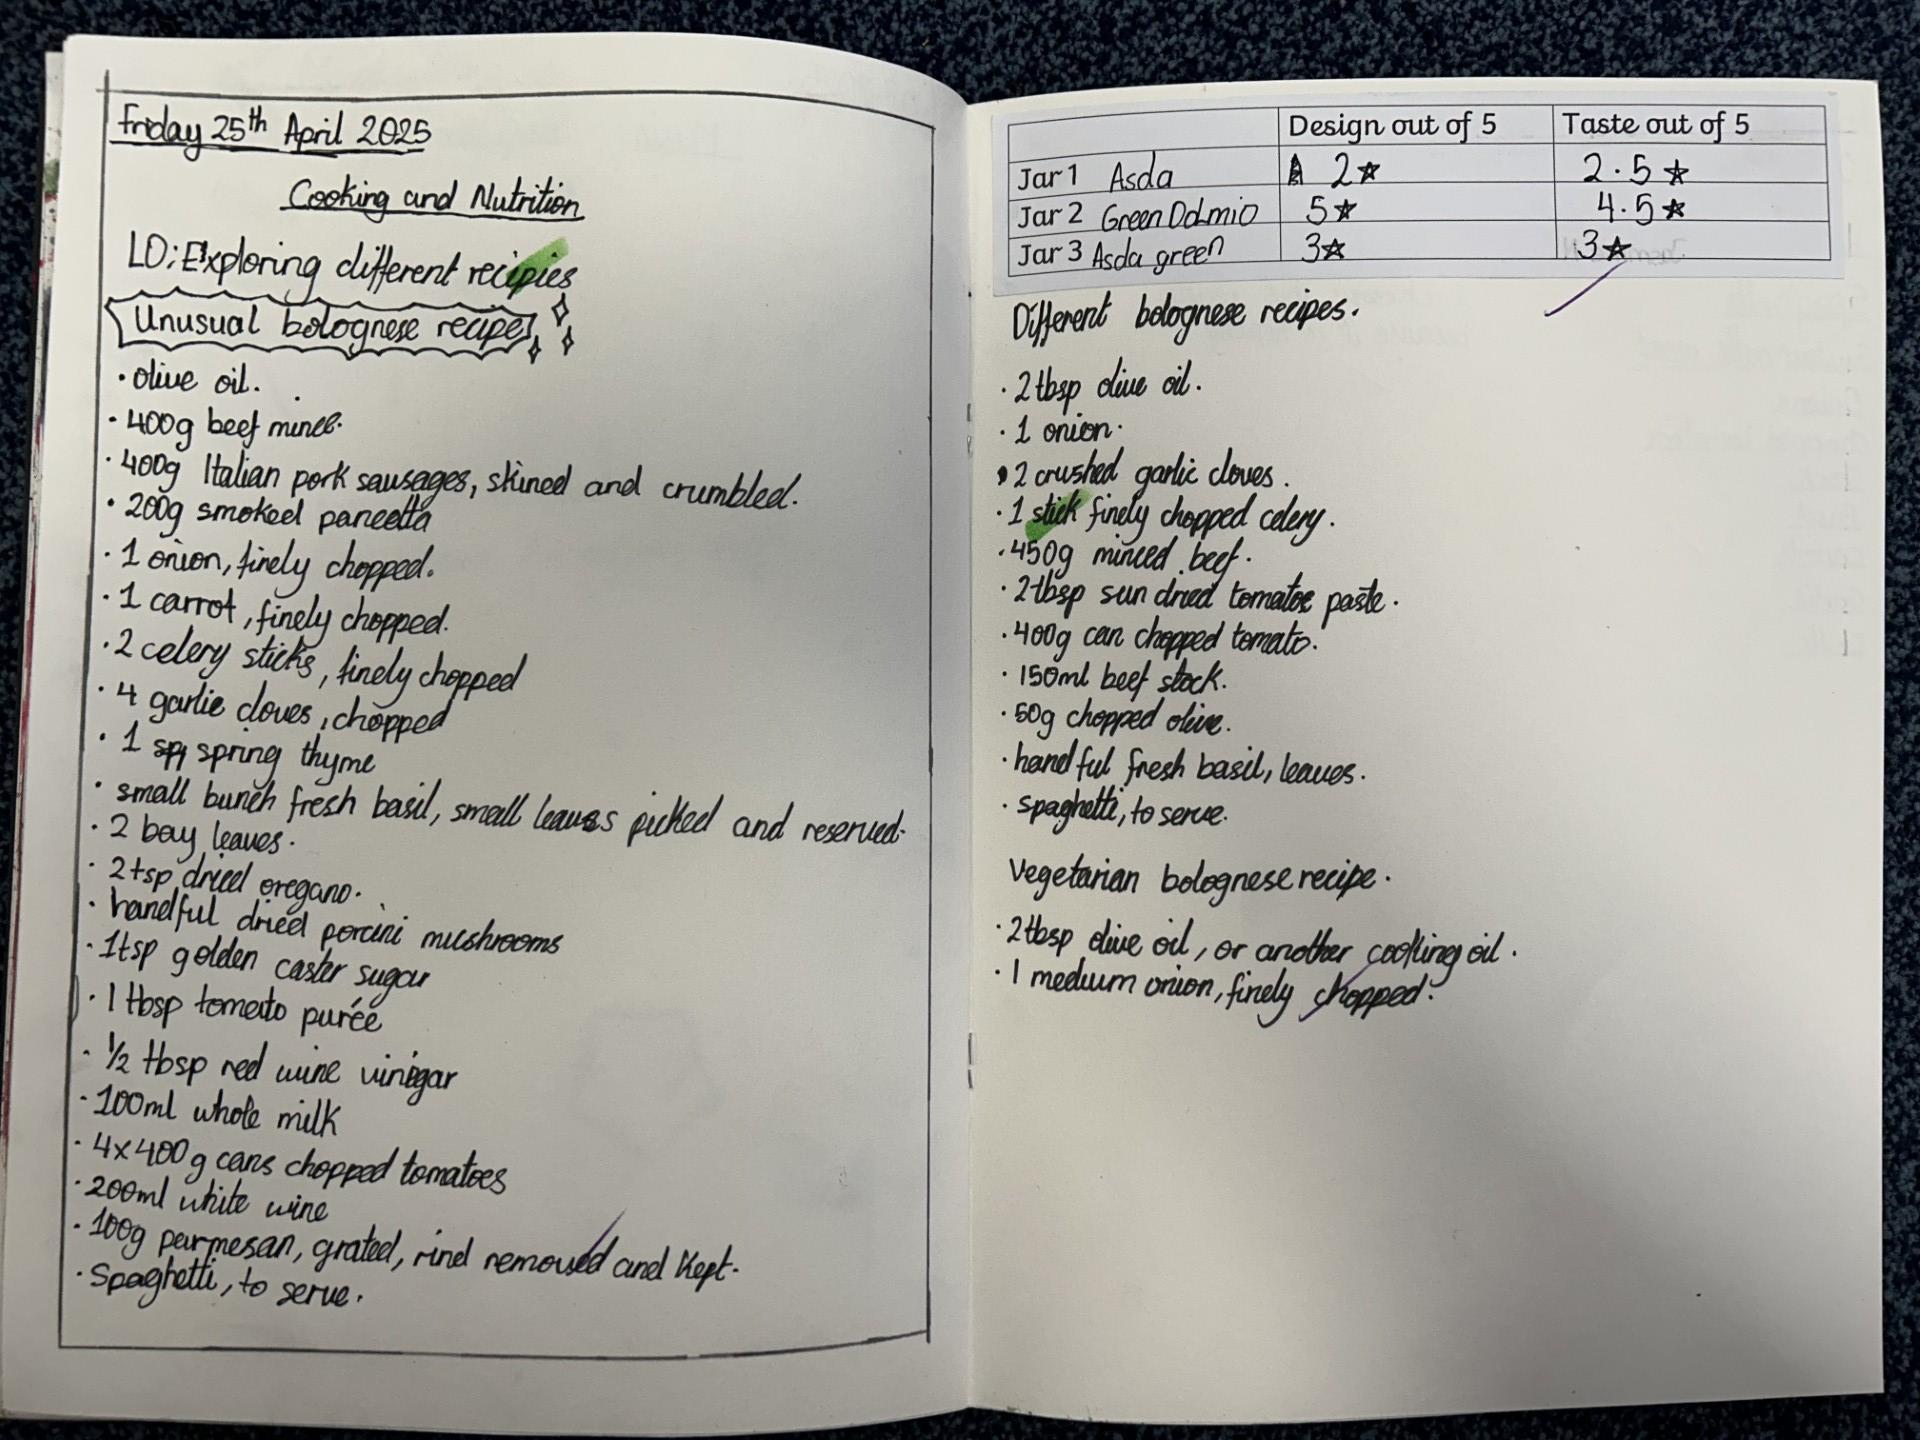 Friday 25th April 2025
Cooking and Nutrition
LO: Exploring different recipies
Unusual bolognese recipe
• olive oil.
• 400g beef mince.
• 400g Italian pork sausages, skined and crumbled.
• 200g smoked pancetta
• 1 onion, finely chopped.
• 1 carrot, finely chopped.
• 2 celery sticks, finely chopped
• 4 garlic cloves, chopped
• 1 spring thyme
• small bunch fresh basil, small leaves picked and reserved.
• 2 bay leaves.
• 2tsp dried oregano.
• handful dried porcini mushrooms
• 1tsp golden caster sugar
• 1 tbsp tomato purée
• ½ tbsp red wine vinigar
• 100ml whole milk
• 4x400g cans chopped tomatoes
• 200ml white wine
• 100g parmesan, grated, rind removed and kept.
• Spaghetti, to serve.
Design out of 5 Taste out of 5
Jar 1 Asda 2★ 2.5★
Jar 2 Green Dolmio 5★ 4.5★
Jar 3 Asda green 3★ 3★
Different bolognese recipes.
• 2tbsp olive oil.
• 1 onion.
• 2 crushed garlic cloves.
• 1 stick finely chopped celery.
• 450g minced beef.
• 2tbsp sun dried tomatoe paste.
• 400g can chopped tomato.
• 150ml beef stock.
• 50g chopped olive.
• handful fresh basil, leaves.
• spaghetti, to serve.
Vegetarian bolognese recipe.
• 2tbsp olive oil, or another cooking oil.
• 1 medium onion, finely chopped.